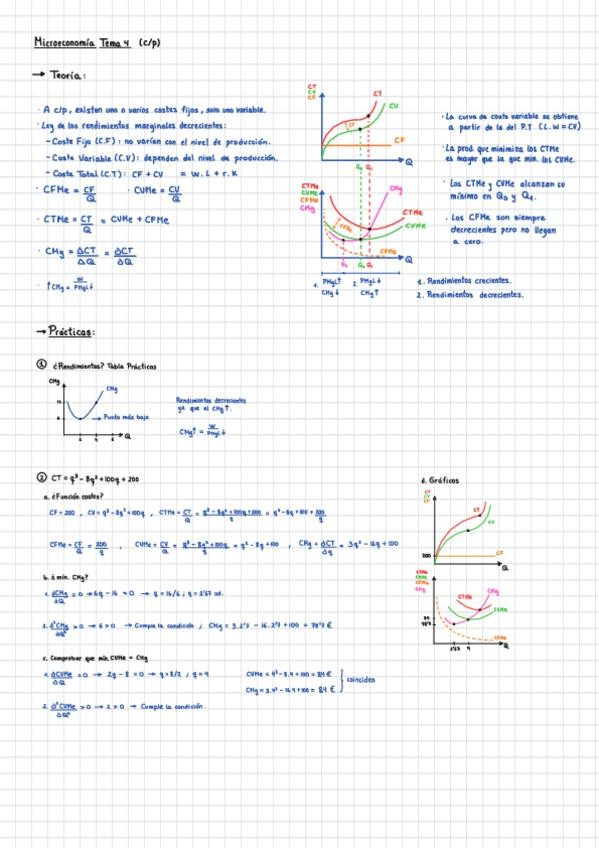 Microeconomía Tema 4 (c/p)
→ Teoría:
· A c/p, existen uno o varios costes fijos, solo uno variable.
· Ley de los rendimientos marginales decrecientes:
- Coste Fijo (C.F): no varían con el nivel de producción.
- Coste Variable (C.V): dependen del nivel de producción.
- Coste Total (C.T): CF + CV = w.L + r.K
· CFMe = CF/Q · CVMe = CV/Q
· CTMe = CT/Q = CVMe + CFMe
· CMg = ΔCT/ΔQ = ∂CT/∂Q
· ↑CMg = W/PMgL↓
CT
CV
CF
CT
CV
CF
Q
Q₀ Q₁
CTMe
CVMe
CFMe
CMg
CMg
CTMe
CVMe
CFMe
Q
1. PMgL↑ 2. PMgL↓
CMg↓ CMg↑
· La curva de coste variable se obtiene
a partir de la del P.T (L.W=CV)
· La prod. que minimiza los CTMe
es mayor que la que min. los CVMe.
· Los CTMe y CVMe alcanzan su
mínimo en Q₀ y Q₁.
· Los CFMe son siempre
decrecientes pero no llegan
a cero.
1. Rendimientos crecientes.
2. Rendimientos decrecientes.
→ Prácticas:
① ¿Rendimientos? Tabla Prácticas
CMg
CMg
Punto más bajo
2 4 6 Q
Rendimientos decrecientes
ya que el CMg↑.
CMg↑ = W/PMgL↓
② CT = q³ - 8q² + 100q + 200
a. ¿Función costes?
CF = 200 , CV = q³ - 8q² + 100q , CTMe = CT/Q = q³ - 8q² + 100q + 200/q = q² - 8q + 100 + 200/q
CFMe = CF/Q = 200/q , CVMe = CV/Q = q³ - 8q² + 100q/q = q² - 8q + 100 , CMg = ΔCT/Δq = 3q² - 16q + 100
b. ¿min. CMg?
1. ∂CMg/∂Q = 0 → 6q - 16 = 0 → q = 16/6 ; q = 2'67 ud.
2. ∂²CMg/∂Q² > 0 → 6 > 0 → Cumple la condición ; CMg = 3.2'7² - 16.2'7 + 100 = 78'7 €
c. Comprobar que min. CVMe = CMg
1. ∂CVMe/∂Q = 0 → 2q - 8 = 0 → q = 8/2 ; q = 4
CVMe = 4² - 8.4 + 100 = 84 €
CMg = 3.4² - 16.4 + 100 = 84 €
coinciden
2. ∂²CVMe/∂Q² > 0 → 2 > 0 → Cumple la condición.
d. Gráficos
CT
CV
CF
CT
CV
200
CF
Q
CTMe
CVMe
CFMe
CMg
CTMe
CMg
CVMe
84
78'7
CFMe
2'67 4 Q